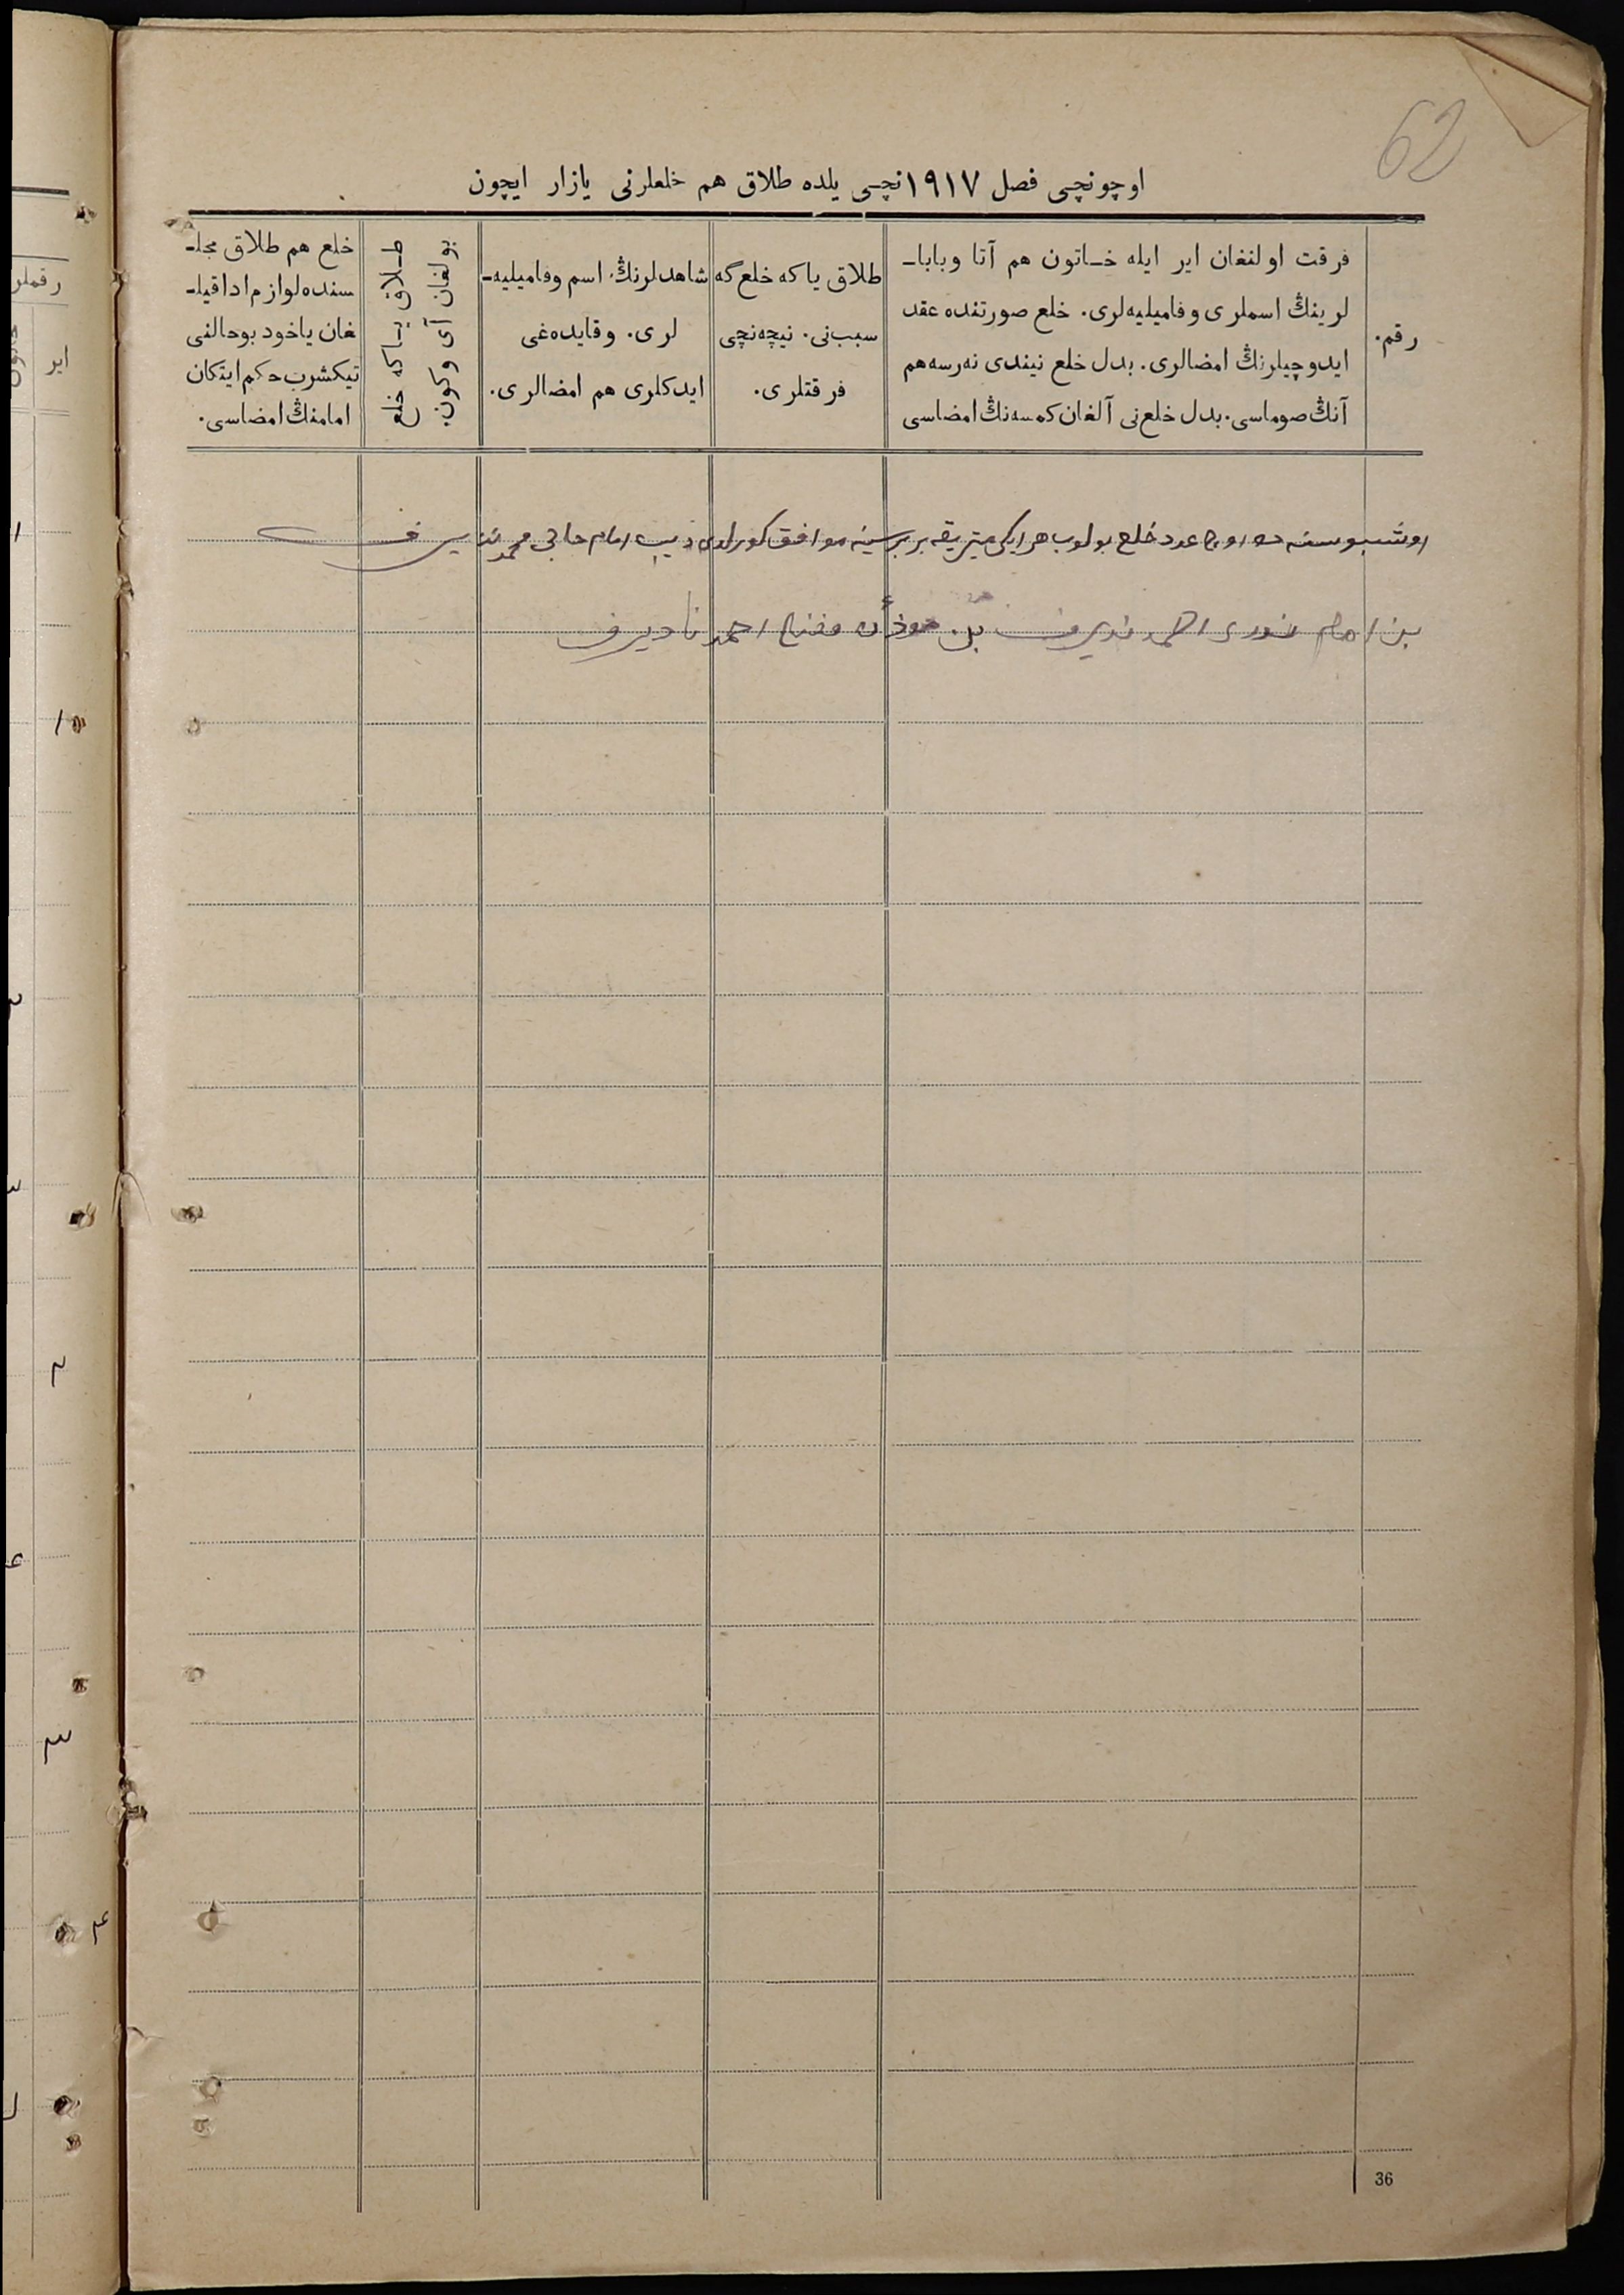 62
اوچونچی فصل ۱۹۱۷نچی یلده طلاق هم خلعلرنی یازار ایچون
رقم.
فرقت اولنغان ایر ایله خـاتون هم آتا وبابا‌ـ
لرینڭ اسملری وفامیلیه‌لری. خلع صورتنده عقد
ایدوچیلرنڭ امضالری. بدل خلع نیندی نه‌رسه هم
آنڭ صوماسی. بدل خلع‌نی آلغان کمسه‌نڭ امضاسی
طلاق یا که خلع گه
سبب‌نی. نیچه‌نچی
فرقتلری.
شاهدلرنڭ اسم وفامیلیه‌ـ
لری. وقایده‌غی
ایدکلری هم امضالری.
طـلاق یـاکه خلع
بولغان آی وکون.
خلع هم طلاق مجلـ
سنده لوازم ادا قیلـ
غان یاخود بوحالنی
تیکشرب حکم ایتکان
امامنڭ امضاسی.
اوشبو سنه ده اوچ عدد خلع بولوب هر ایکی متریقه بر برسینه موافق کورلدی دیب امام حاجی محمد
بن امام نوری احمد بن مؤذن مفتاح احمد نادیروف
36
رقملر
ایر